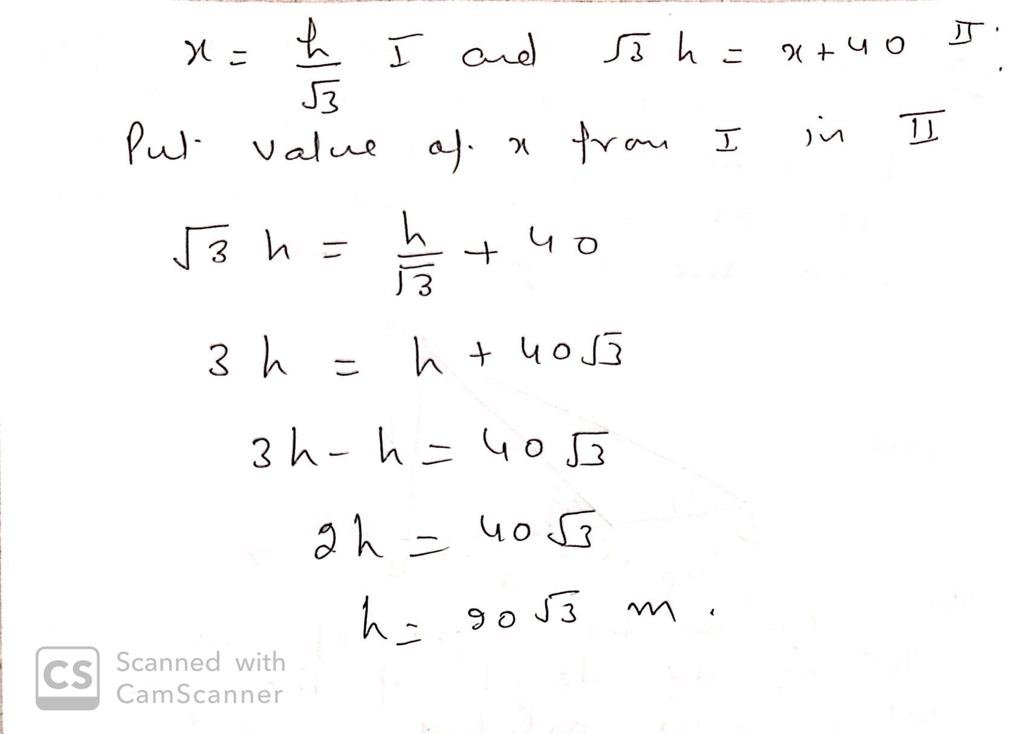 x = h/√3 I and √3 h = x + 40 II.
Put value of x from I in II
√3 h = h/√3 + 40
3 h = h + 40√3
3h - h = 40 √3
2h = 40 √3
h = 20 √3 m.
CS Scanned with
CamScanner